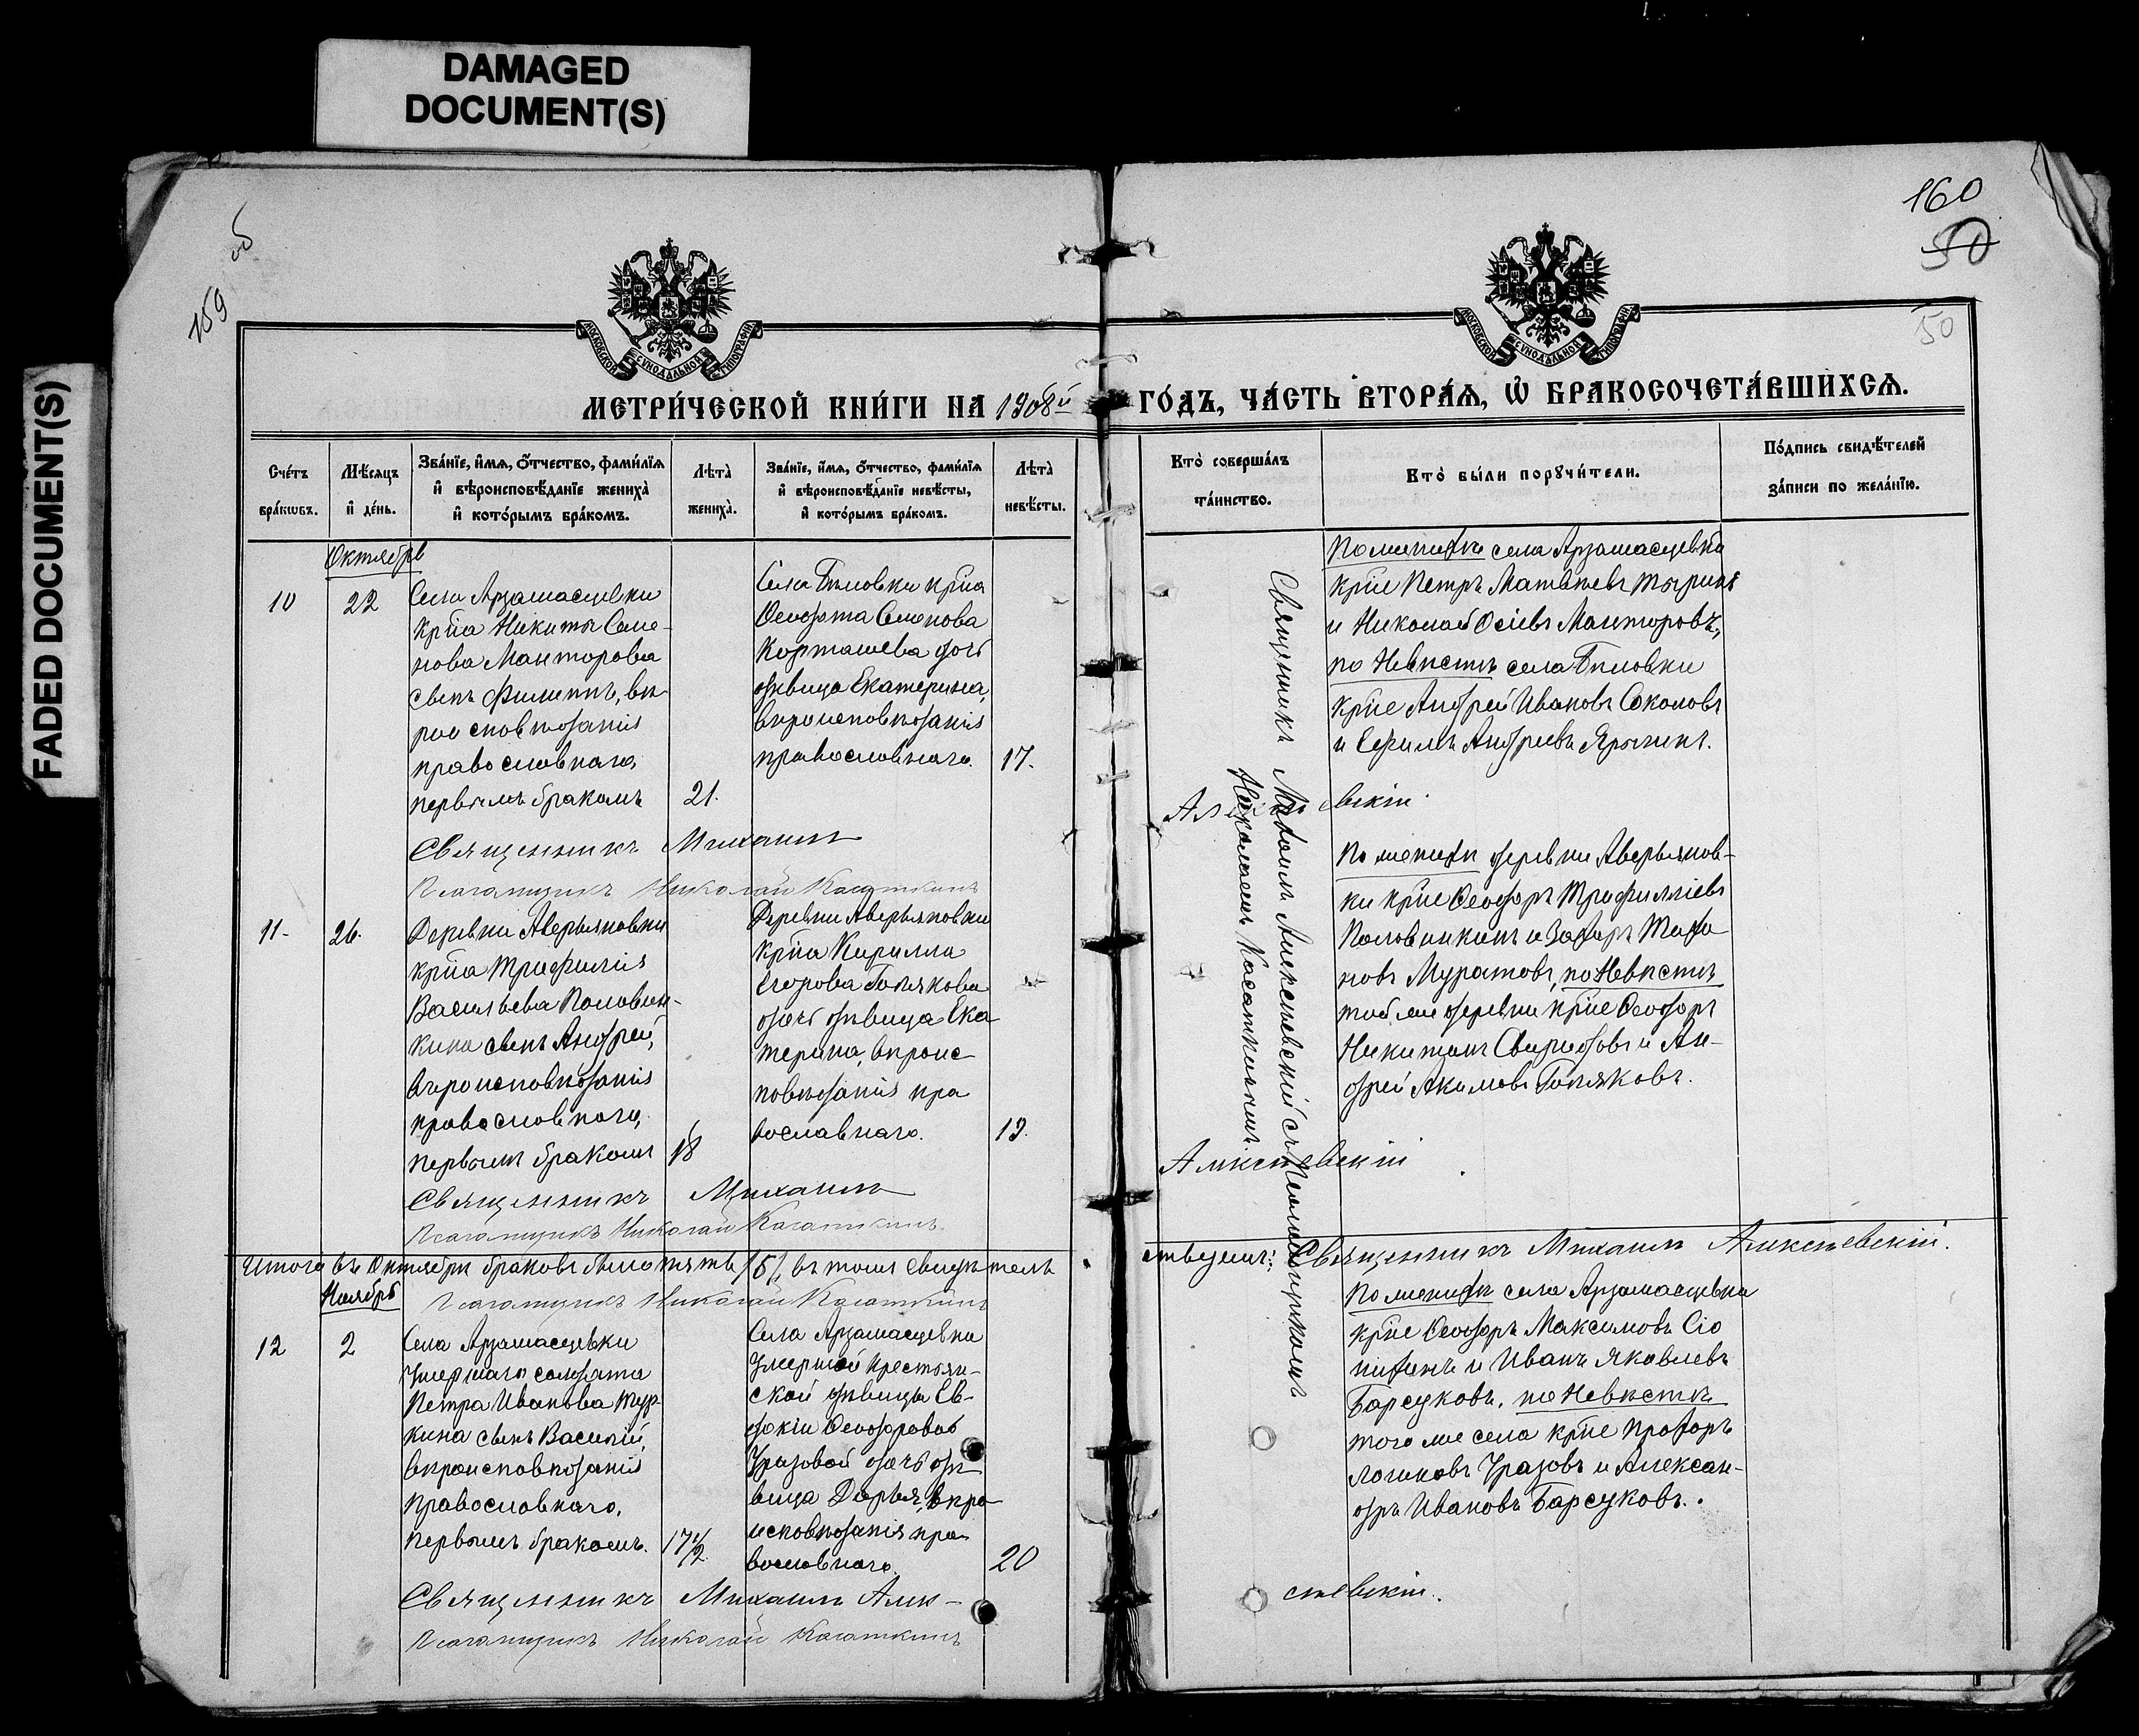 DAMAGED
DOCUMENT(S)
FADED DOCUMENT(S)
159 об
160
50
50
МОСКОВСКОЙ СУНОДАЛЬНОЙ ТИПОГРАФІИ
МОСКОВСКОЙ СУНОДАЛЬНОЙ ТИПОГРАФІИ
МЕТРИ́ЧЕСКОЙ КНИ́ГИ НА 1908й ГО́ДЪ, ЧА́СТЬ ВТОРА́Ѧ, Ѡ҆ БРАКОСОЧЕТА́ВШИХСѦ.
Сче́тъ бра́кѡвъ.
Мѣ́сяцъ и҆ де́нь.
Зва́нїе, и҆́мѧ, ѻ҆́тчество, фами́лїѧ и҆ вѣроисповѣ́данїе жениха̀ и҆ кото́рымъ бра́комъ.
Лѣта̀ жениха̀.
Зва́нїе, и҆́мѧ, ѻ҆́тчество, фами́лїѧ и҆ вѣроисповѣ́данїе невѣ́сты, и҆ кото́рымъ бра́комъ.
Лѣта̀ невѣ́сты.
Кто̀ соверша́лъ та́инство.
Кто̀ бы́ли порꙋчи́тели.
По́дпись свидѣ́телей за́писи по жела́нїю.
Октябрь
10
22
Села Арзамасцевки
кр̃на Никиты Семе-
нова Манторова
сынъ Филиппъ, вѣ-
роисповѣданія
православнаго,
первымъ бракомъ
21.
Села Бѣловки кр̃на
Ѳеодота Семенова
Карташева дочь
дѣвица Екатерина,
вѣроисповѣданія
православнаго.
17.
По женихѣ села Арзамасцевки
кр̃не Петръ Матвѣевъ Тыринъ
и Николай Осіевъ Манторовъ,
по Невѣстѣ села Бѣловки
кр̃не Андрей Ивановъ Соколовъ
и Ефимъ Андреевъ Ярыкинъ.
Священникъ Михаилъ Алексѣевскій
Псаломщикъ Николай Касаткинъ
11-
26.
Деревни Аверьяновки
кр̃на Трифилія
Васильева Половин-
кина сынъ Андрей,
вѣроисповѣданія
православнаго,
первымъ бракомъ
18
Деревни Аверьяновки
кр̃на Кирилла
Егорова
дочь дѣвица Ека
терина, вѣроис
повѣданія пра
вославнаго.
19.
По женихѣ деревни Аверьянов-
ки кр̃не Ѳеодоръ Трифиліевъ
Половинкинъ и Захаръ
Муратовъ, по Невѣстѣ
той же деревни кр̃не Ѳеодоръ
Никитинъ Свиридовъ и Ан-
дрей Акимовъ
Священникъ Михаилъ Алексѣевскій съ Псаломщикомъ
Николаемъ Касаткинымъ
Священникъ Михаилъ Алексѣевскій
Псаломщикъ Николай Касаткинъ
Итого въ Октябрѣ браковъ было пять /5/, въ томъ свидѣтельствуемъ: Священникъ Михаилъ Алексѣевскій.
Псаломщикъ Николай Касаткинъ
Ноябрь
12
2
Села Арзамасцевки
умершаго солдата
Петра Иванова Тур-
кина сынъ Василій,
вѣроисповѣданія
православнаго,
первымъ бракомъ.
17 1/2.
Села Арзамасцевки
умершей крестьян-
ской дѣвицы Ев-
докіи Ѳеодоровой
Уразовой дочь дѣ-
вица Дарья, вѣро-
исповѣданія пра-
вославнаго.
20
По женихѣ села Арзамасцевки
кр̃не Ѳеодоръ Максимовъ
и Иванъ Яковлевъ
Барсуковъ, по Невѣстѣ
того же села кр̃не Прохоръ
Логиновъ Уразовъ и Алексан-
дръ Ивановъ Барсуковъ.
Священникъ Михаилъ Алексѣевскій.
Псаломщикъ Николай Касаткинъ